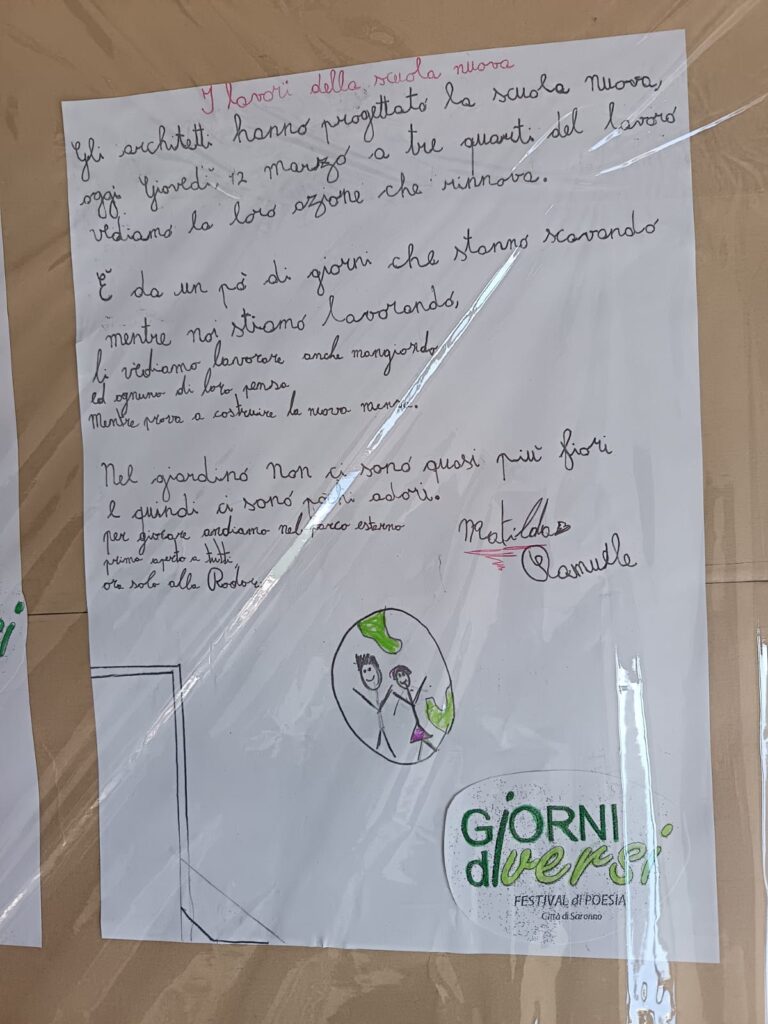 I lavori della scuola nuova
Gli architetti hanno progettato la scuola nuova,
oggi Giovedì, 12 marzo a tre quarti del lavoro
vediamo la loro azione che rinnova.
È da un pò di giorni che stanno scavando
mentre noi stiamo lavorando,
li vediamo lavorare anche mangiando
ed ognuno di loro pensa
Mentre prova a costruire la nuova mensa.
Nel giardino non ci sono quasi più fiori
e quindi ci sono pochi adori.
per giocare andiamo nel parco esterno
prima aperto a tutti,
ora solo alla Rodari
Matilda
GiORNI
diversi
FESTIVAL di POESIA
Città di Saronno